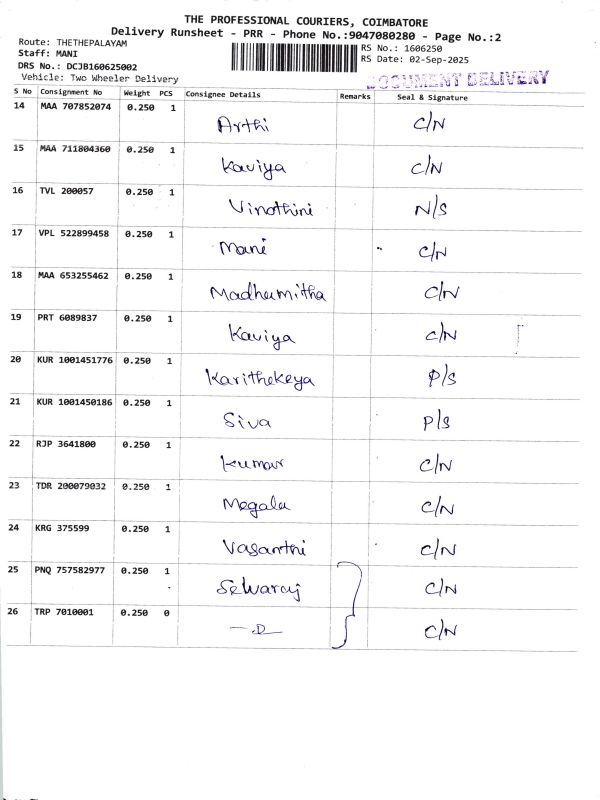 THE PROFESSIONAL COURIERS, COIMBATORE
Delivery Runsheet - PRR - Phone No.:9047080280 - Page No.:2
Route: THETHEPALAYAM
Staff: MANI
DRS No.: DCJB160625002
Vehicle: Two Wheeler Delivery
RS No.: 1606250
RS Date: 02-Sep-2025
DOCUMENT DELIVERY
S No Consignment No Weight PCS Consignee Details Remarks Seal & Signature
14 MAA 707852074 0.250 1 Arthi C/N
15 MAA 711804360 0.250 1 Kaviya C/N
16 TVL 200057 0.250 1 Vinothini N/S
17 VPL 522899458 0.250 1 Mani C/N
18 MAA 653255462 0.250 1 Madhumitha C/N
19 PRT 6089837 0.250 1 Kaviya C/N
20 KUR 1001451776 0.250 1 Karithekeya P/S
21 KUR 1001450186 0.250 1 Siva P/S
22 RJP 3641800 0.250 1 Kumar C/N
23 TDR 200079032 0.250 1 Megala C/N
24 KRG 375599 0.250 1 Vasanthi C/N
25 PNQ 757582977 0.250 1 Selvaraj C/N
26 TRP 7010001 0.250 0 C/N